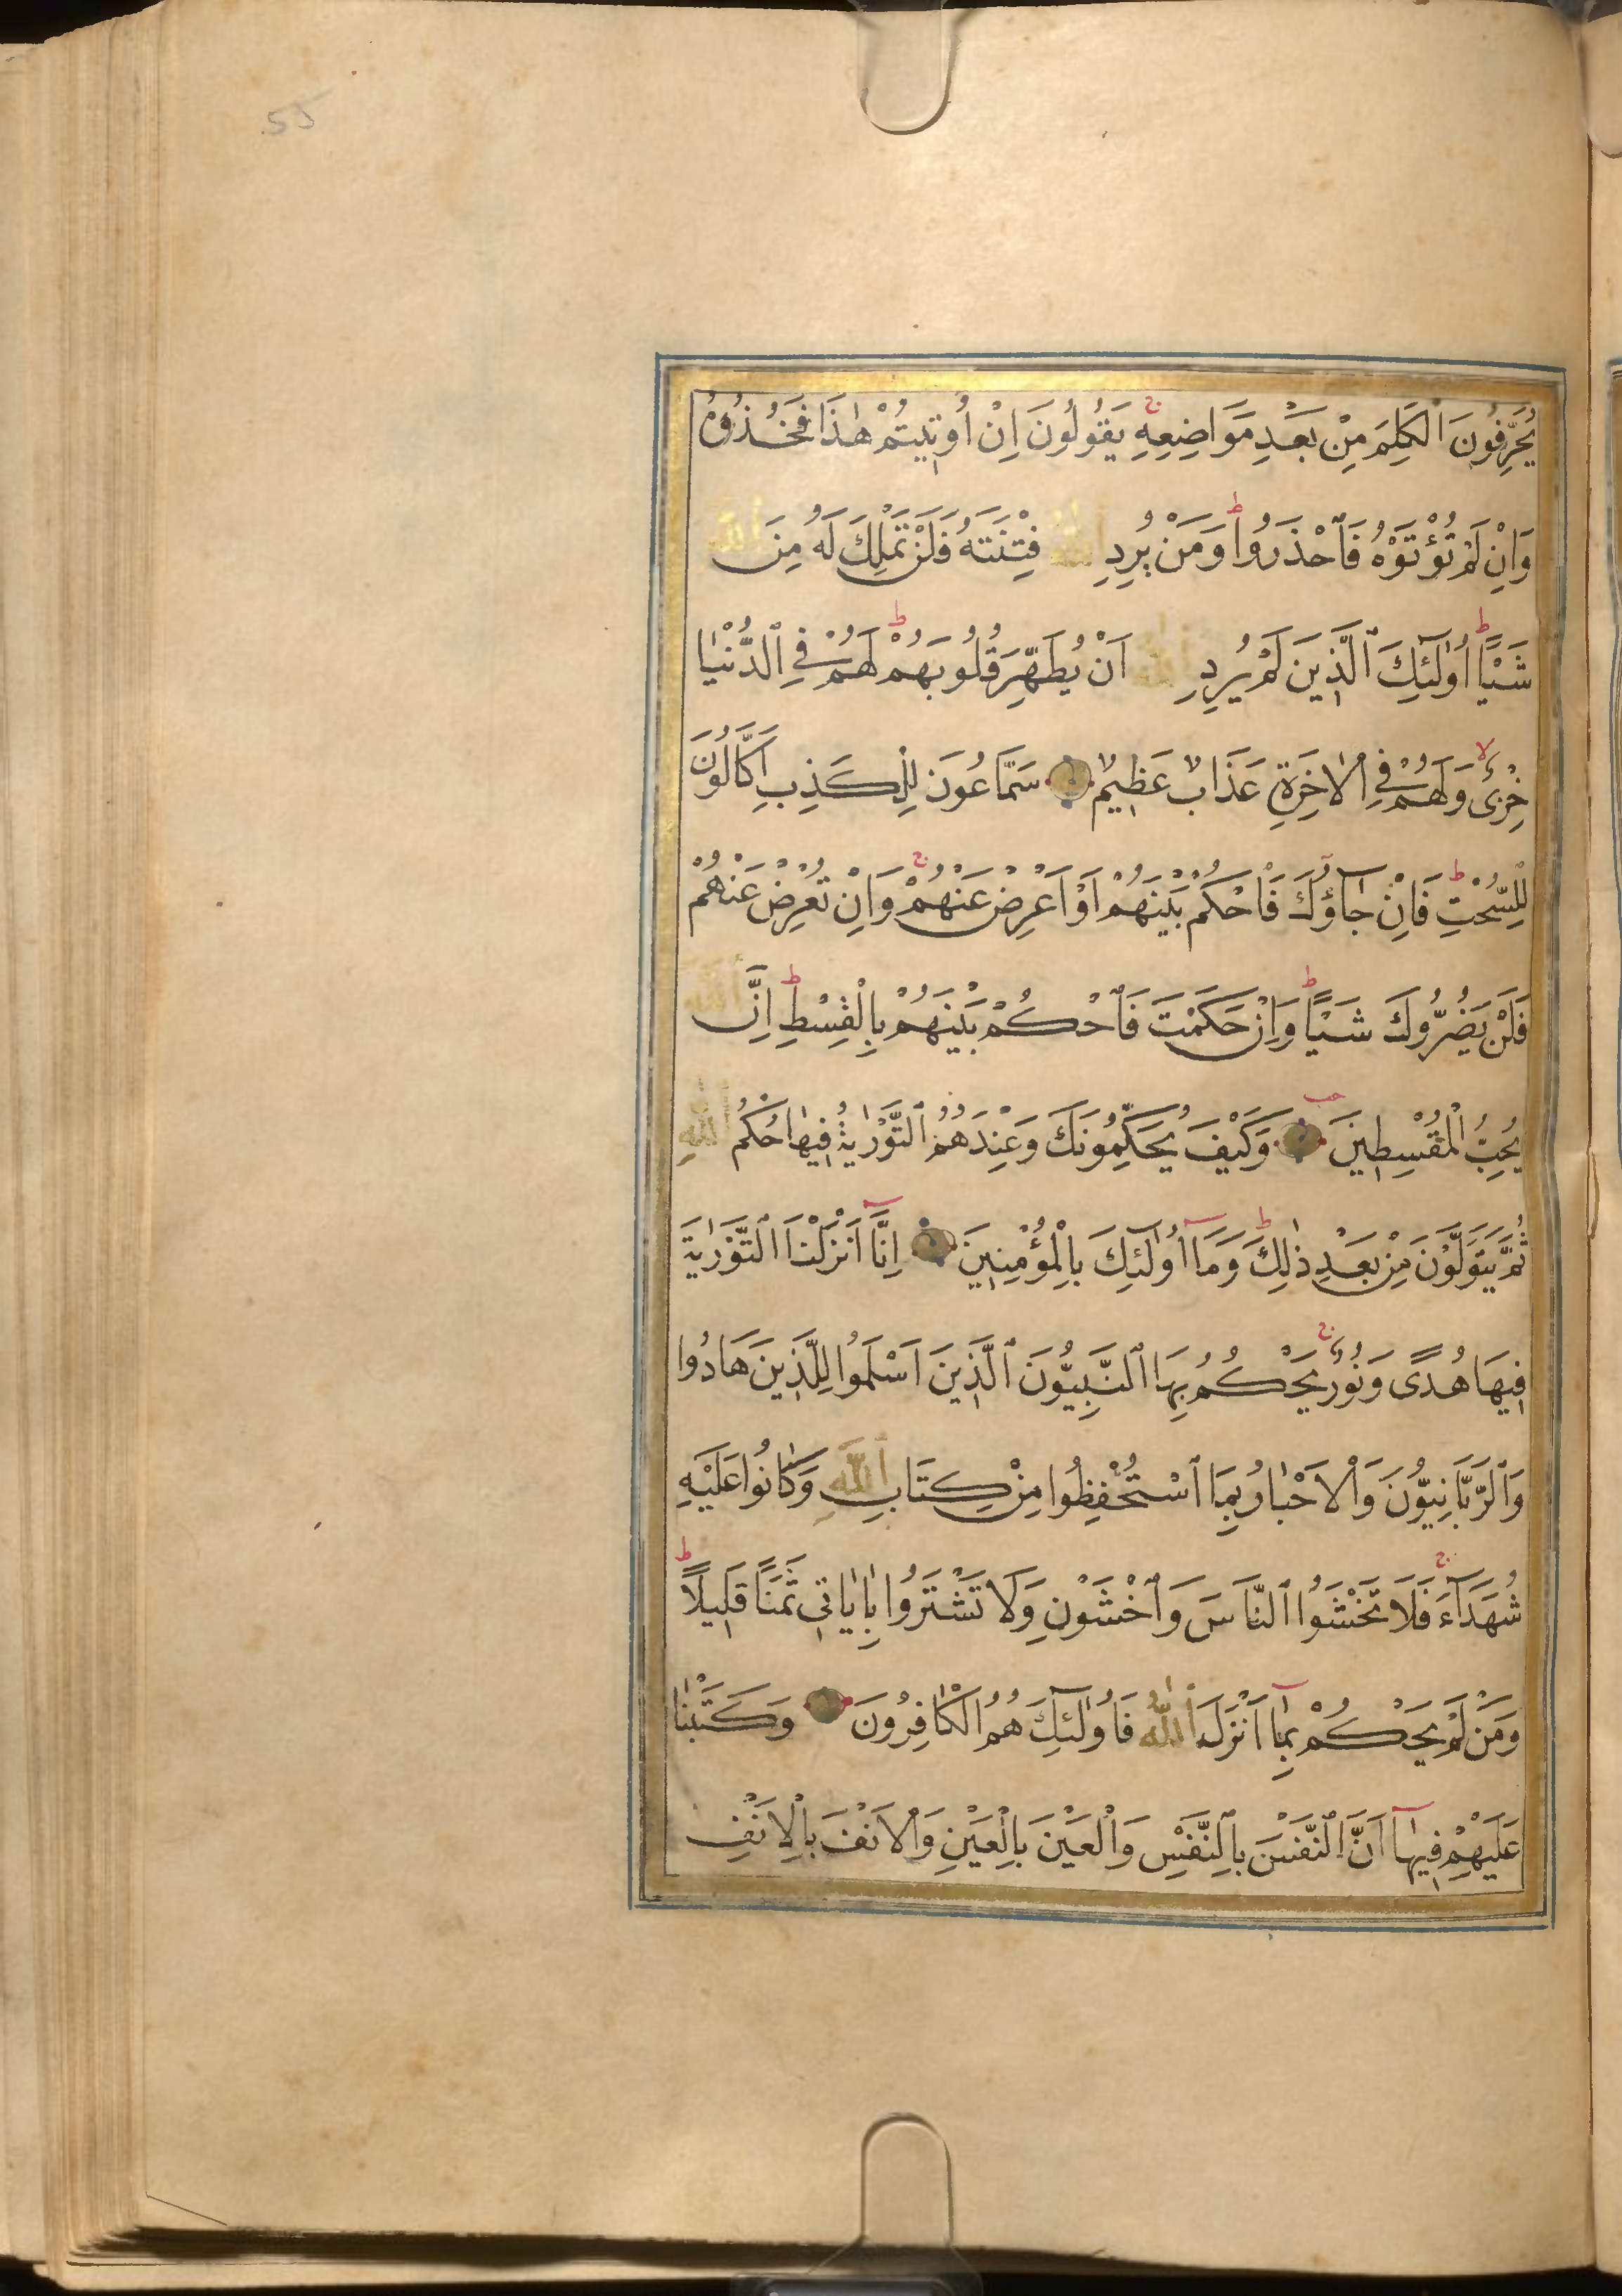 55
يُحَرِّفُونَ ٱلْكَلِمَ مِنْ بَعْدِ مَوَاضِعِهِ ۚ يَقُولُونَ اِنْ اُو۫ت۪يتُمْ هٰذَا فَخُذُوهُ
وَاِنْ لَمْ تُؤْتَوْهُ فَٱحْذَرُوا ط وَمَنْ يُرِدِ ٱللّٰهُ فِتْنَتَهُ فَلَنْ تَمْلِكَ لَهُ مِنَ ٱللّٰهِ
شَيْـًٔا ط اُولٰٓئِكَ ٱلَّذ۪ينَ لَمْ يُرِدِ ٱللّٰهُ اَنْ يُطَهِّرَ قُلُوبَهُمْ ط لَهُمْ فِي ٱلدُّنْيٰا
خِزْىٌ لا وَلَهُمْ فِي ٱلْاٰخِرَةِ عَذَابٌ عَظ۪يمٌ سَمَّاعُونَ لِلْكَذِبِ اَكَّالُونَ
لِلسُّحْتِ ط فَاِنْ جَآؤُكَ فَٱحْكُمْ بَيْنَهُمْ اَوْ اَعْرِضْ عَنْهُمْ ج وَاِنْ تُعْرِضْ عَنْهُمْ
فَلَنْ يَضُرُّوكَ شَيْـًٔا ط وَاِنْ حَكَمْتَ فَٱحْكُمْ بَيْنَهُمْ بِالْقِسْطِ ط اِنَّ ٱللّٰهَ
يُحِبُّ ٱلْمُقْسِط۪ينَ وَكَيْفَ يُحَكِّمُونَكَ وَعِنْدَهُمُ ٱلتَّوْرٰيةُ ف۪يهٰا حُكْمُ ٱللّٰهِ
ثُمَّ يَتَوَلَّوْنَ مِنْ بَعْدِ ذٰلِكَ ط وَمَآ اُولٰٓئِكَ بِالْمُؤْمِن۪ينَ اِنَّآ اَنْزَلْنَا ٱلتَّوْرٰيةَ
ف۪يهَا هُدًى وَنُورٌ ج يَحْكُمُ بِهَا ٱلنَّبِيُّونَ ٱلَّذ۪ينَ اَسْلَمُوا لِلَّذ۪ينَ هَادُوا
وَٱلرَّبَّانِيُّونَ وَٱلْاَحْبٰارُ بِمَا ٱسْتُحْفِظُوا مِنْ كِتَابِ ٱللّٰهِ وَكٰانُوا عَلَيْهِ
شُهَدَآءَ ج فَلَا تَخْشَوُا ٱلنَّاسَ وَٱخْشَوْنِ وَلَا تَشْتَرُوا بِاٰيٰات۪ي ثَمَنًا قَل۪يلًا ط
وَمَنْ لَمْ يَحْكُمْ بِمَآ اَنْزَلَ ٱللّٰهُ فَاُولٰٓئِكَ هُمُ ٱلْكٰافِرُونَ وَكَتَبْنٰا
عَلَيْهِمْ ف۪يهٰآ اَنَّ ٱلنَّفْسَ بِالنَّفْسِ وَٱلْعَيْنَ بِالْعَيْنِ وَٱلْاَنْفَ بِالْاَنْفِ